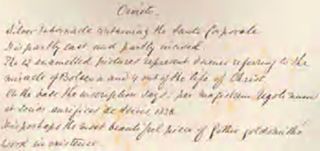 Orvieto.
Silver tabernacle containing the Santo Corporale
It is partly cast and partly incised.
The 12 enamelled pictures represent scenes referring to the
miracle of Bolsena and 4 out of the life of Christ.
On the base the inscription says: per magistrum Ugolinum
et socios aurifices de Senis 1338.
It is perhaps the most beautiful piece of Gothic goldsmiths
work in existence.